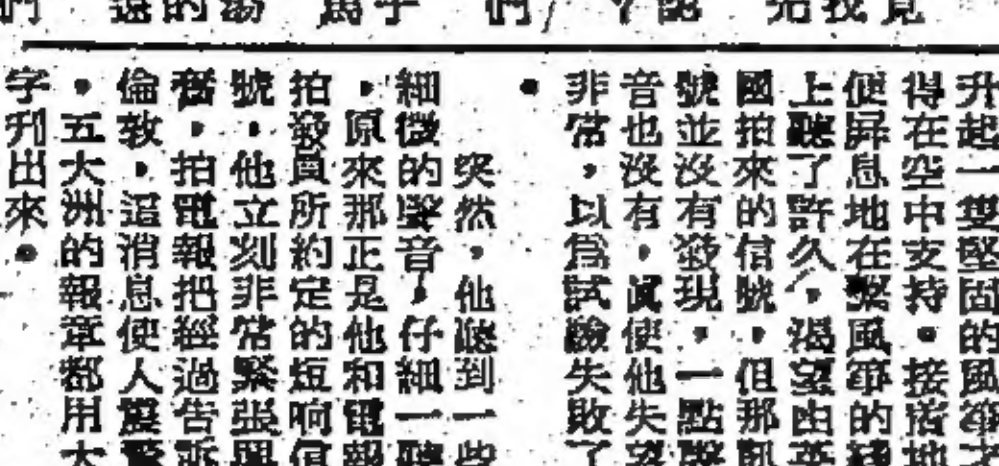 升起一雙堅固的風箏才
得在空中支持。接着他
便屏息地在緊風箏的綫
上聽了許久，渴望由英
國拍來的信號，但那訊
號並沒有發現，一點聲
音也沒有，眞使他失望
非常，以爲試驗失敗了
。
突然，他聽到一些
細微的聲音，仔細一聽
，原來那正是他和電報
拍發員所約定的短响信
號，他立刻非常緊張興
奮，拍電報把經過告訴
倫敦，這消息使人震驚
，五大洲的報章都用大
字刋出來。